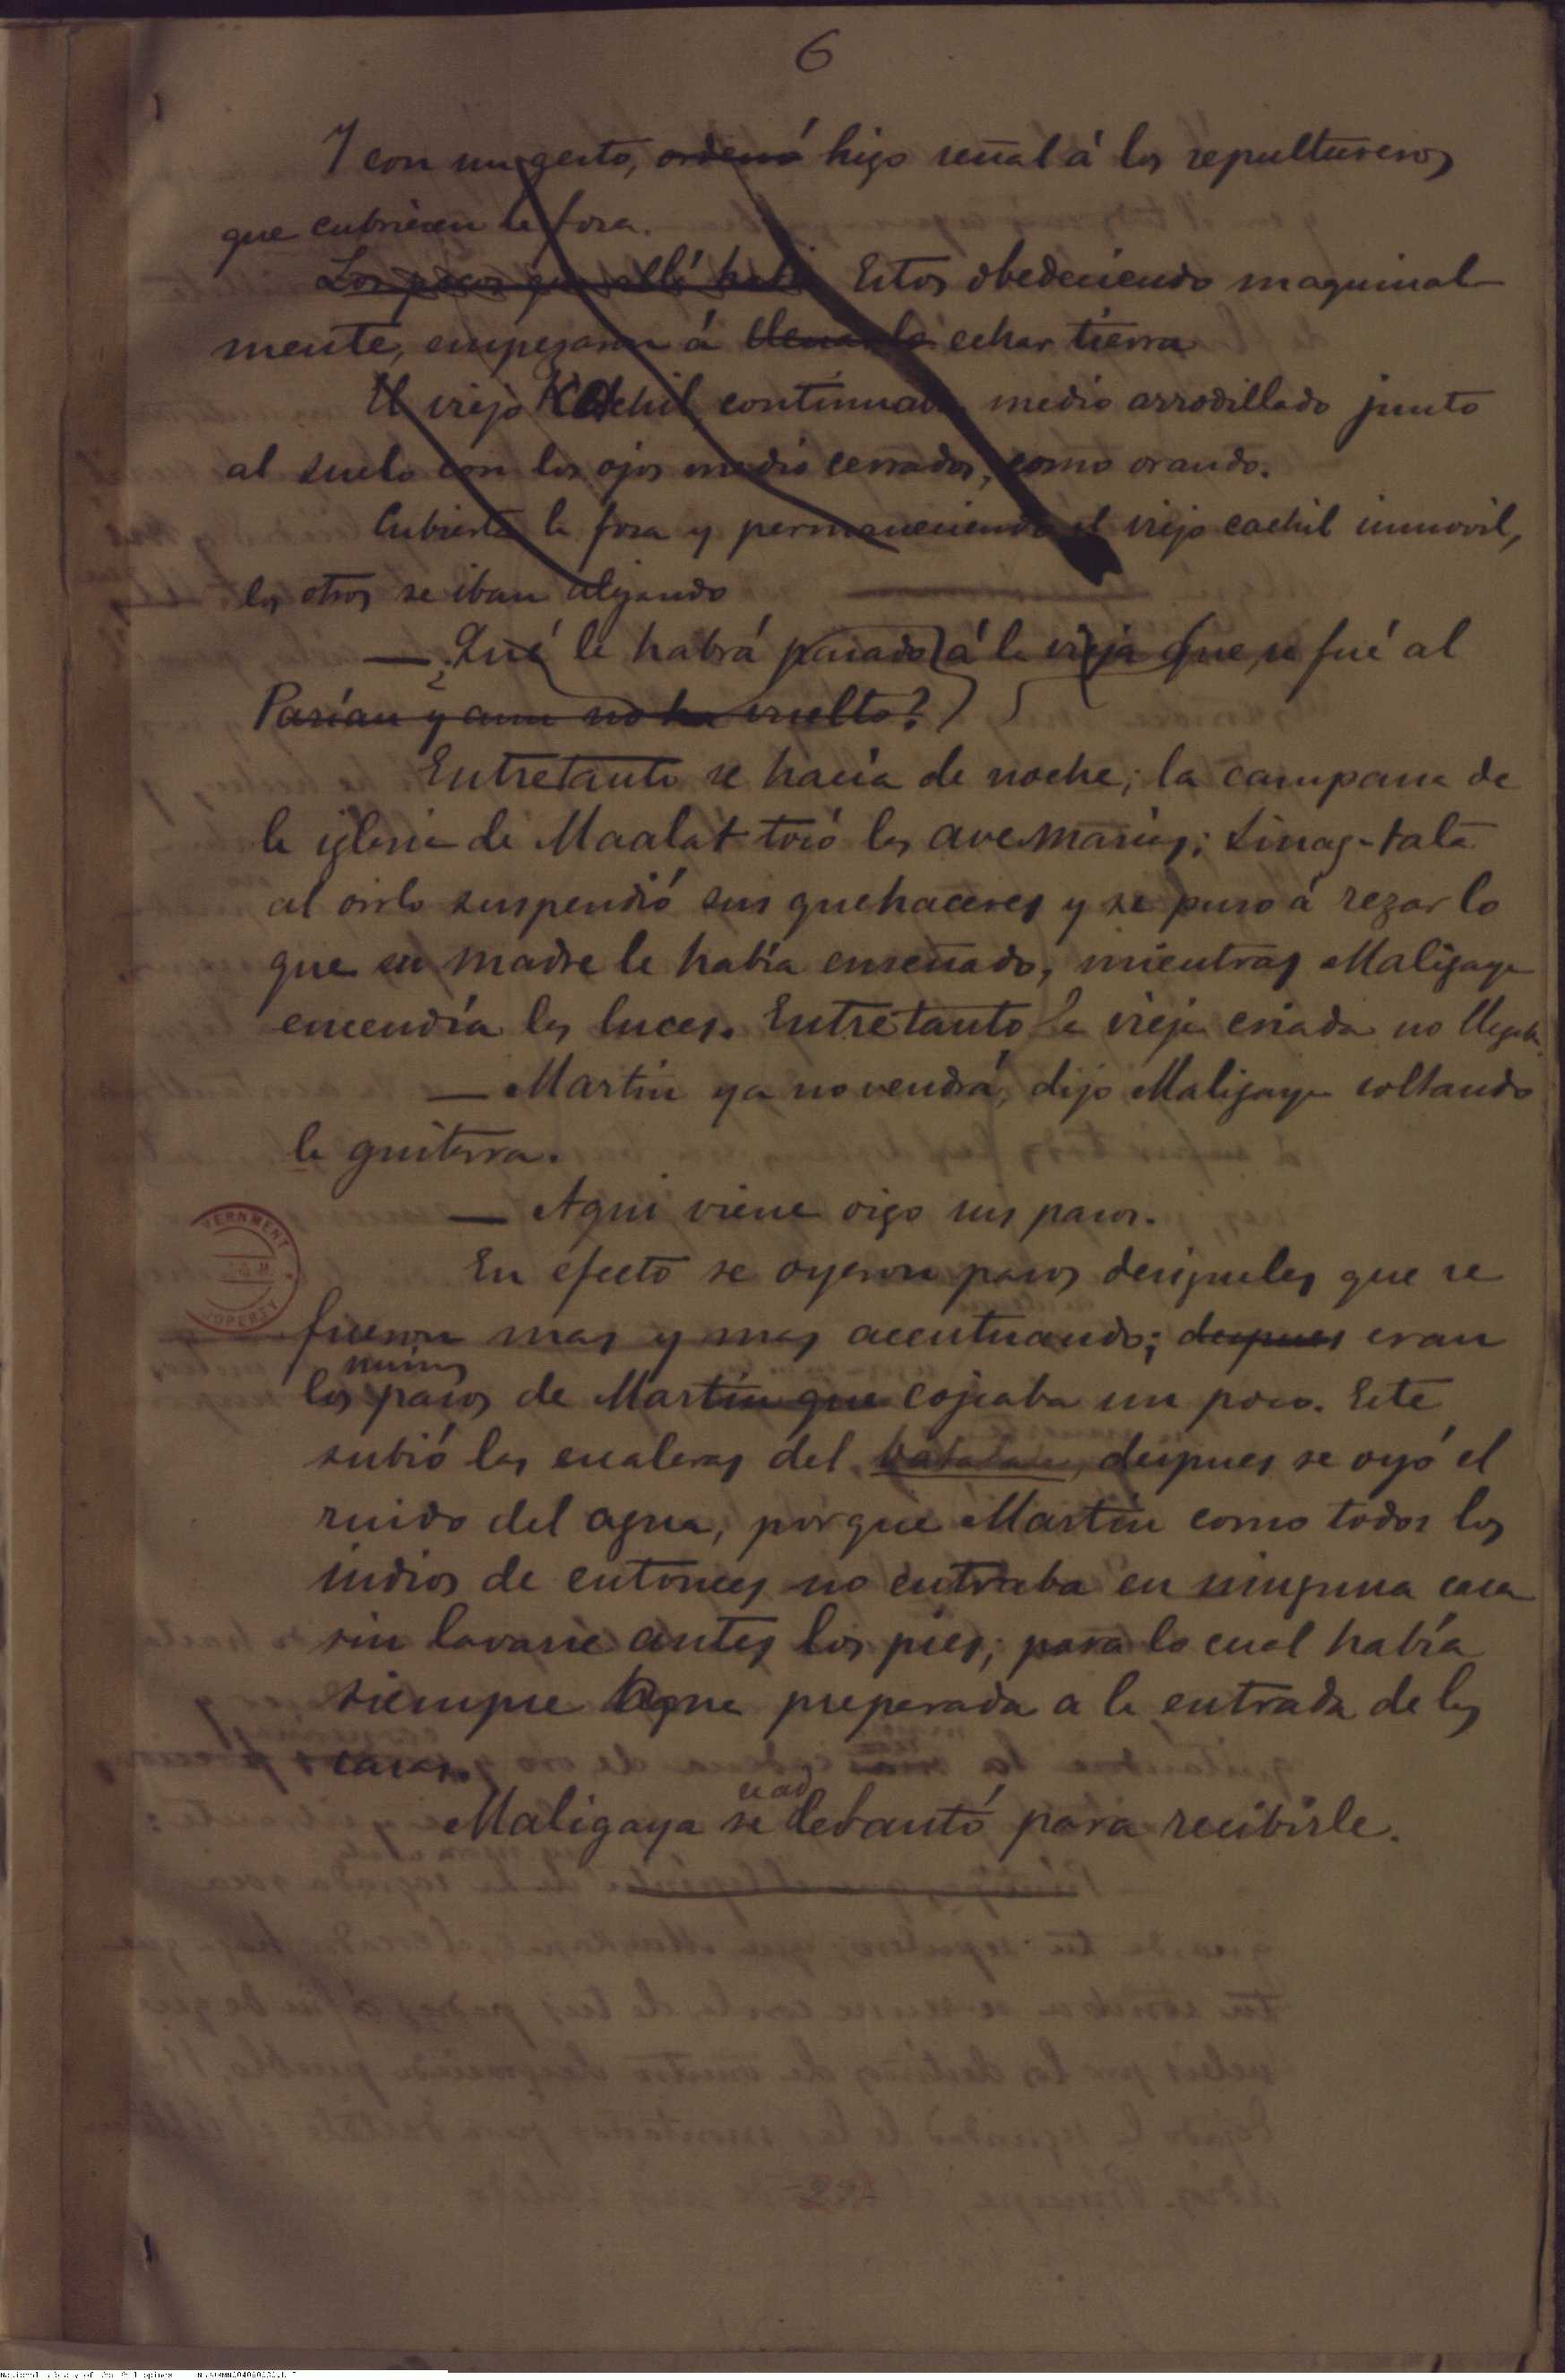 6
Y con un gesto, ordenó hizo señal á los sepultureros
que cubriesen la fosa.
Los pocos que allí había Estos obedeciendo maquinal-
mente, empezaron á llenarla echar tierra
El viejo Kachil, continuaba medio arrodillado junto
al suelo con los ojos medio cerrados, como orando.
Cubierta la fosa y permaneciendo el viejo cachil inmovil,
los otros se iban alejando
— ¿Qué le habrá pasado á la vieja que se fué al
Parían y aun no ha vuelto?
Entretanto se hacía de noche; la campana de
la iglesia de Maalat tocó las avemarias; Sinag-tala
al oirlo suspendió sus quehaceres y se puso á rezar lo
que su madre le había enseñado, mientras Maligaya
encendía las luces. Entretanto la vieja criada no llegaba.
— Martin ya no vendrá, dijo Maligaya soltando
la guitarra.
— Aqui viene oigo sus pasos.
En efecto se oyeron pasos desiguales que se
fueron mas y mas accentuando; despues eran
los pasos de Martin que cojeaba un poco. Este
subió las escaleras del batalan, despues se oyó el
ruido del agua, porque Martin como todos los
indios de entonces no entraba en ninguna casa
sin lavarse antes los pies; para lo cual había
siempre agua preparada a la entrada de las
casas.
Maligaya se lebantó para recibirle.